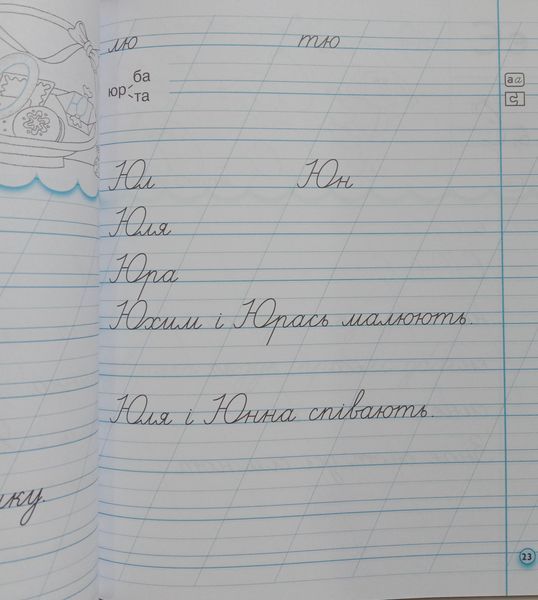 лю тю
ба
юр
та
Юл Юн
Юля
Юра
Юхим і Юрась малюють.
Юля і Юнна співають.
ику.
аа
23